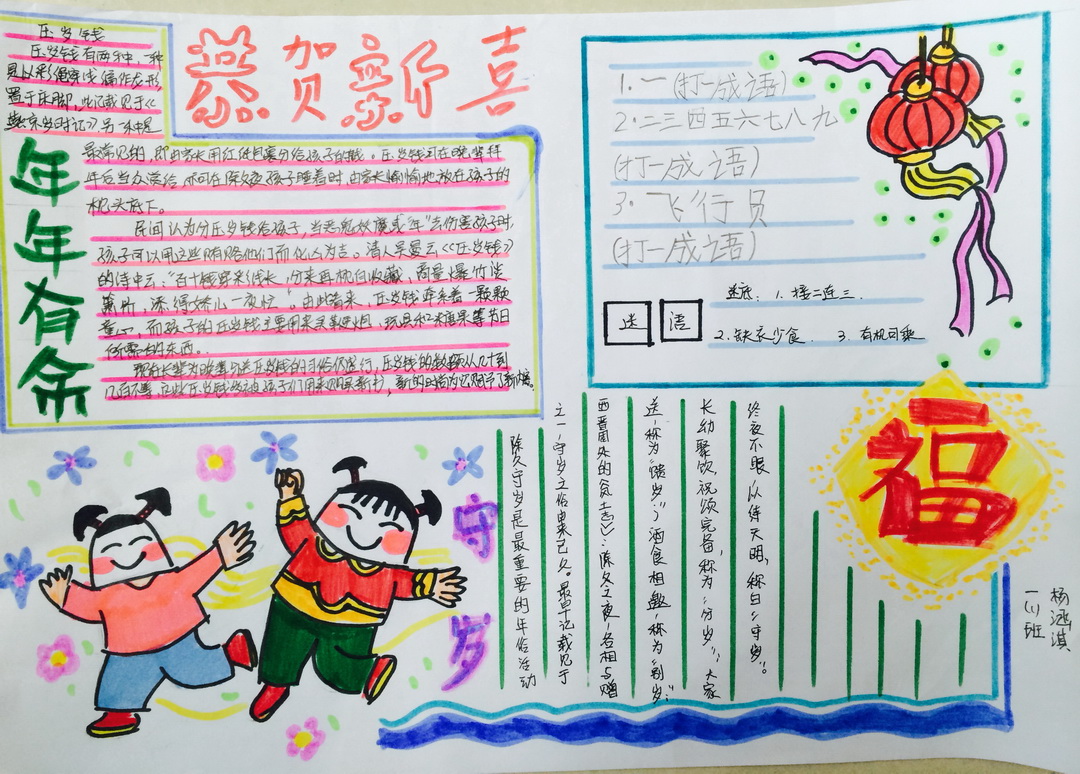 恭贺新喜
年年有余
压岁钱
压岁钱有两种，一种
是以彩绳穿线编作龙形，
置于床脚，此记载见于《
燕京岁时记》；另一种是
最常见的，即由家长用红纸包裹分给孩子的钱。压岁钱可在晚辈拜
年后当众赏给，亦可在除夕夜孩子睡着时，由家长偷偷地放在孩子的
枕头底下。
民间认为分压岁钱给孩子，当恶鬼妖魔或"年"去伤害孩子时，
孩子可以用这些钱贿赂他们而化凶为吉。清人吴曼云《压岁钱》
的诗中云："百十钱穿彩线长，分来再枕自收藏，商量爆竹谈
箫价，添得娇儿一夜忙"。由此看来，压岁钱牵系着一颗颗
童心，而孩子的压岁钱主要用来买鞭炮、玩具和糖果等节日
所需的东西。
1.一(打一成语)
2.二三四五六七八九
(打一成语)
3.飞行员
(打一成语)
迷语
迷底：1.接二连三
2.缺衣少食 3.有机可乘
福
守岁
除夕守岁是最重要的年俗活动
之一，守岁之俗由来已久。最早记载见于
西晋周处的《风土志》：除夕之夜，各相与赠
送，称为"馈岁"；酒食相邀，称为"别岁"；
长幼聚饮，祝颂完备，称为"分岁"；大家
终夜不眠，以待天明，称曰"守岁"。
一(1)班
杨鸿淇